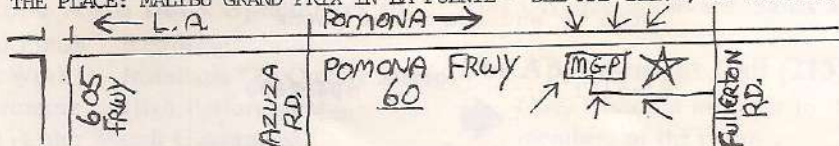 THE PLACE: MALIBU GRAND PRIX IN LA PUENTE
← L.A. POMONA →
605 FRWY
AZUZA RD.
POMONA FRWY 60
MGP
FULLERTON RD.